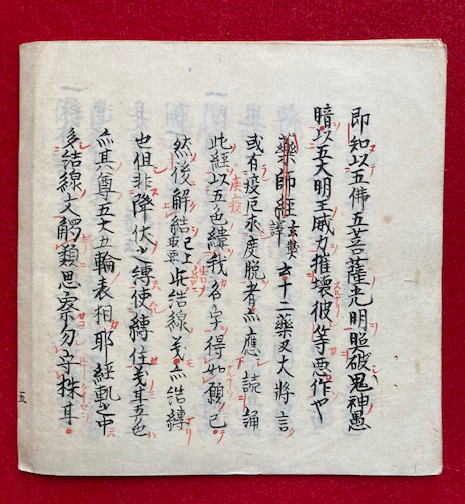 即知以五佛五菩薩光明照破鬼神愚
暗以五大明王威力摧壊彼等悪作也
藥師經玄奘譯云十二藥叉大將言
或有疫厄求度脱者亦應読誦
此經以五色縷結我名字得如願已
然後解結已上取要此結線義亦結縛
也但非降伏之縛使縛住義耳五色
亦其尊五大五輪表相耶經軌之中
多結線文觸類思察勿守株耳
五